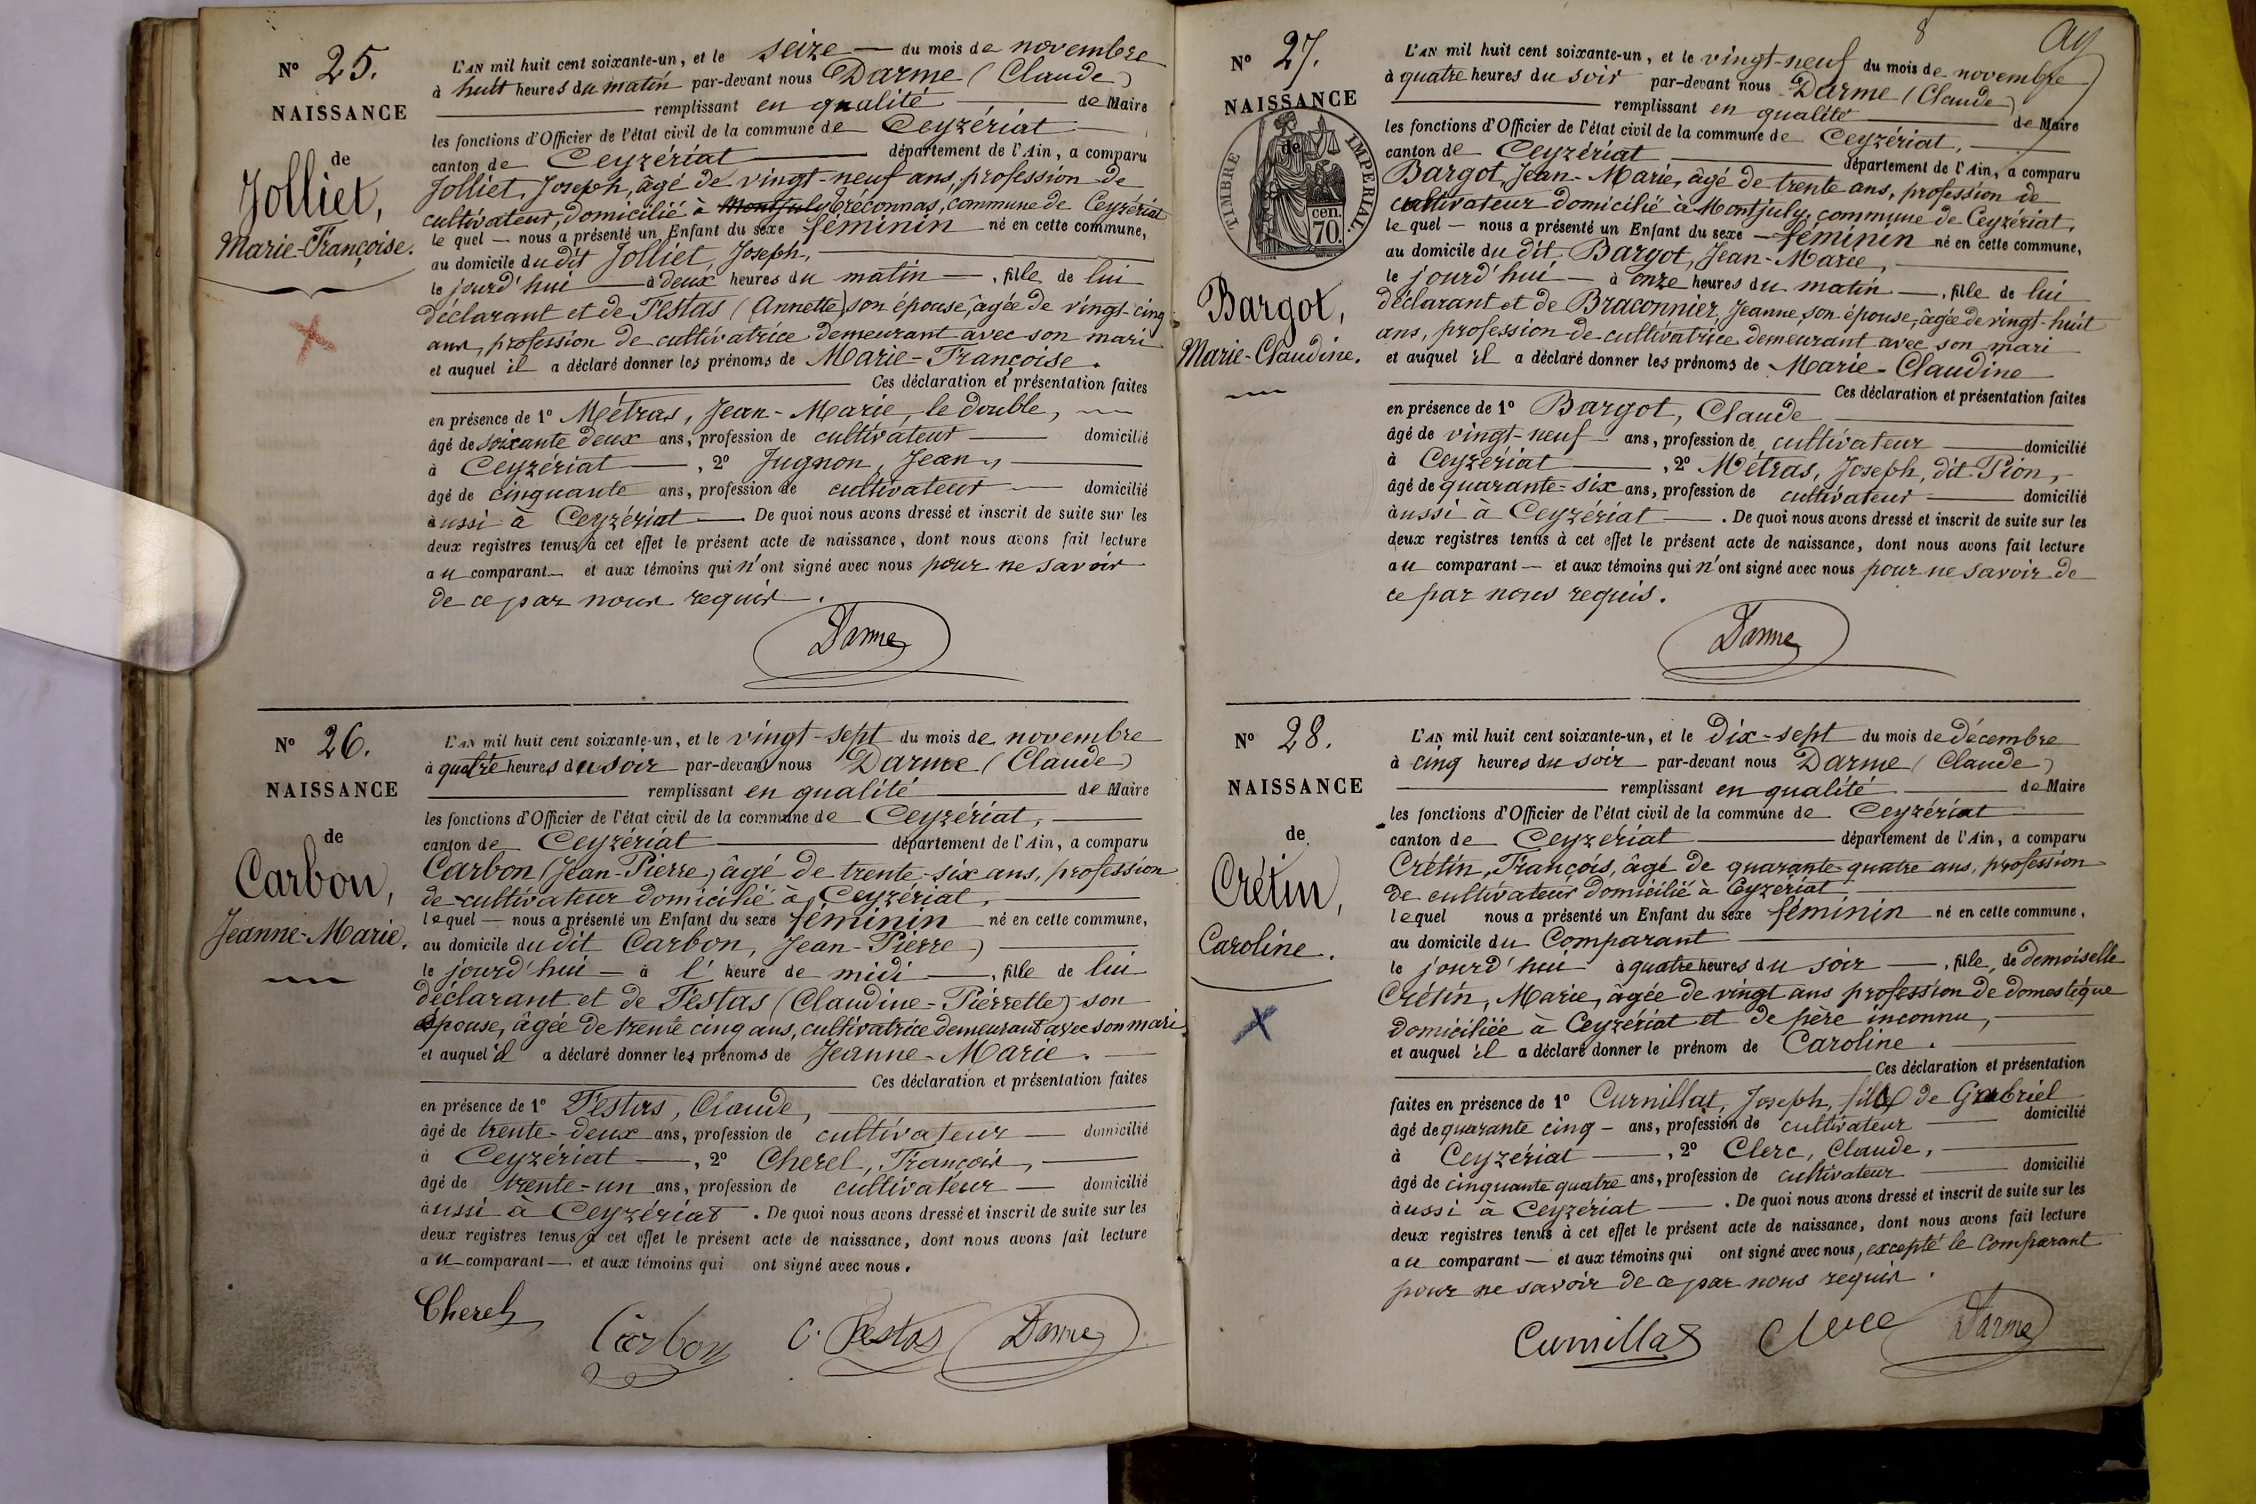 N° 25.
NAISSANCE
de
Jolliet,
Marie-Françoise.
L'AN mil huit cent soixante-un, et le seize du mois de novembre
à huit heures du matin par-devant nous Darme (Claude)
remplissant en qualité de Maire
les fonctions d'Officier de l'état civil de la commune de Ceyzériat
canton de Ceyzériat département de l'Ain, a comparu
Jolliet, Joseph, âgé de vingt-neuf ans, profession de
cultivateur, domicilié à Montjuly Breconnas, commune de Ceyzériat
le quel nous a présenté un Enfant du sexe féminin né en cette commune,
au domicile du dit Jolliet, Joseph,
le jourd'hui à deux heures du matin, fille de lui
déclarant et de Festas (Annette) son épouse, âgée de vingt-cinq
ans, profession de cultivatrice demeurant avec son mari
et auquel il a déclaré donner les prénoms de Marie-Françoise.
Ces déclaration et présentation faites
en présence de 1° Métras, Jean-Marie, le double,
âgé de soixante deux ans, profession de cultivateur domicilié
à Ceyzériat, 2° Jugnon, Jean,
âgé de cinquante ans, profession de cultivateur domicilié
aussi à Ceyzériat De quoi nous avons dressé et inscrit de suite sur les
deux registres tenus à cet effet le présent acte de naissance, dont nous avons fait lecture
au comparant et aux témoins qui n'ont signé avec nous pour ne savoir
de ce par nous requis.
Darme
N° 26.
NAISSANCE
de
Carbon,
Jeanne-Marie.
L'AN mil huit cent soixante-un, et le vingt-sept du mois de novembre
à quatre heures du soir par-devant nous Darme (Claude)
remplissant en qualité de Maire
les fonctions d'Officier de l'état civil de la commune de Ceyzériat,
canton de Ceyzériat département de l'Ain, a comparu
Carbon (Jean-Pierre) âgé de trente-six ans, profession
de cultivateur domicilié à Ceyzériat,
lequel nous a présenté un Enfant du sexe féminin né en cette commune,
au domicile du dit Carbon, Jean-Pierre)
le jourd'hui à l' heure de midi, fille de lui
déclarant et de Festas (Claudine-Pierrette) son
épouse, âgée de trente cinq ans, cultivatrice demeurant avec son mari
et auquel il a déclaré donner les prénoms de Jeanne-Marie.
Ces déclaration et présentation faites
en présence de 1° Festas, Claude,
âgé de trente-deux ans, profession de cultivateur domicilié
à Ceyzériat, 2° Cherel, François,
âgé de trente-un ans, profession de cultivateur domicilié
aussi à Ceyzériat. De quoi nous avons dressé et inscrit de suite sur les
deux registres tenus à cet effet le présent acte de naissance, dont nous avons fait lecture
au comparant et aux témoins qui ont signé avec nous.
Cherel Carbon C. Festas Darme
8
N° 27.
NAISSANCE
de
TIMBRE IMPERIAL
70 cen.
Bargot,
Marie-Claudine.
L'AN mil huit cent soixante-un, et le vingt-neuf du mois de novembre
à quatre heures du soir par-devant nous Darme (Claude)
remplissant en qualité de Maire
les fonctions d'Officier de l'état civil de la commune de Ceyzériat,
canton de Ceyzériat département de l'Ain, a comparu
Bargot, Jean-Marie, âgé de trente ans, profession de
cultivateur domicilié à Montjuly, commune de Ceyzériat,
le quel nous a présenté un Enfant du sexe féminin né en cette commune,
au domicile du dit Bargot, Jean-Marie,
le jourd'hui à onze heures du matin, fille de lui
déclarant et de Braconnier, Jeanne, son épouse, âgée de vingt-huit
ans, profession de cultivatrice demeurant avec son mari
et auquel il a déclaré donner les prénoms de Marie-Claudine
Ces déclaration et présentation faites
en présence de 1° Bargot, Claude
âgé de vingt-neuf ans, profession de cultivateur domicilié
à Ceyzériat, 2° Métras, Joseph, dit Pion,
âgé de quarante-six ans, profession de cultivateur domicilié
aussi à Ceyzériat. De quoi nous avons dressé et inscrit de suite sur les
deux registres tenus à cet effet le présent acte de naissance, dont nous avons fait lecture
au comparant et aux témoins qui n'ont signé avec nous pour ne savoir de
ce par nous requis.
Darme
N° 28.
NAISSANCE
de
Crétin,
Caroline.
L'AN mil huit cent soixante-un, et le dix-sept du mois de décembre
à cinq heures du soir par-devant nous Darme (Claude)
remplissant en qualité de Maire
les fonctions d'Officier de l'état civil de la commune de Ceyzériat
canton de Ceyzeriat département de l'Ain, a comparu
Crétin, François, âgé de quarante-quatre ans, profession
de cultivateur domicilié à Ceyzériat
lequel nous a présenté un Enfant du sexe féminin né en cette commune,
au domicile du Comparant
le jourd'hui à quatre heures du soir, fille, de demoiselle
Crétin, Marie, âgée de vingt ans profession de domestique
domiciliée à Ceyzériat et de père inconnu,
et auquel il a déclaré donner le prénom de Caroline.
Ces déclaration et présentation
faites en présence de 1° Curnillat, Joseph, fils de Gabriel
âgé de quarante cinq ans, profession de cultivateur domicilié
à Ceyzériat, 2° Clerc, Claude,
âgé de cinquante quatre ans, profession de cultivateur domicilié
aussi à Ceyzériat. De quoi nous avons dressé et inscrit de suite sur les
deux registres tenus à cet effet le présent acte de naissance, dont nous avons fait lecture
au comparant et aux témoins qui ont signé avec nous, excepté le Comparant
pour ne savoir de ce par nous requis.
Curnillat Clerc Darme